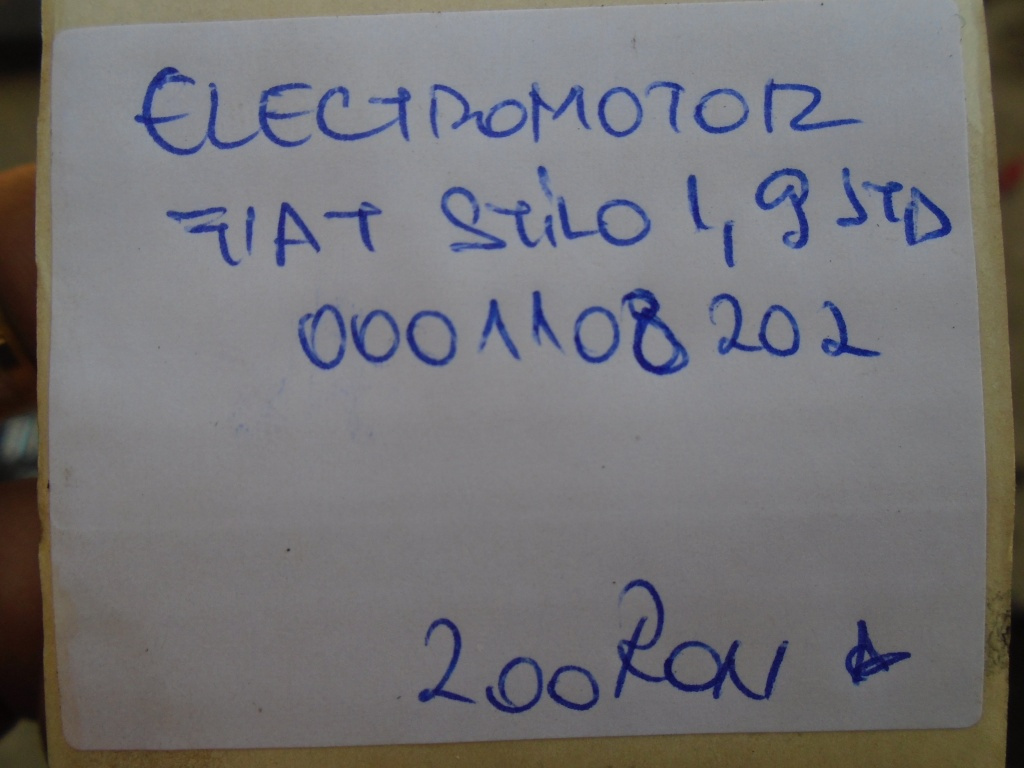 ELECTROMOTOR
FIAT STILO 1,9 JTD
0001108202
200 RON